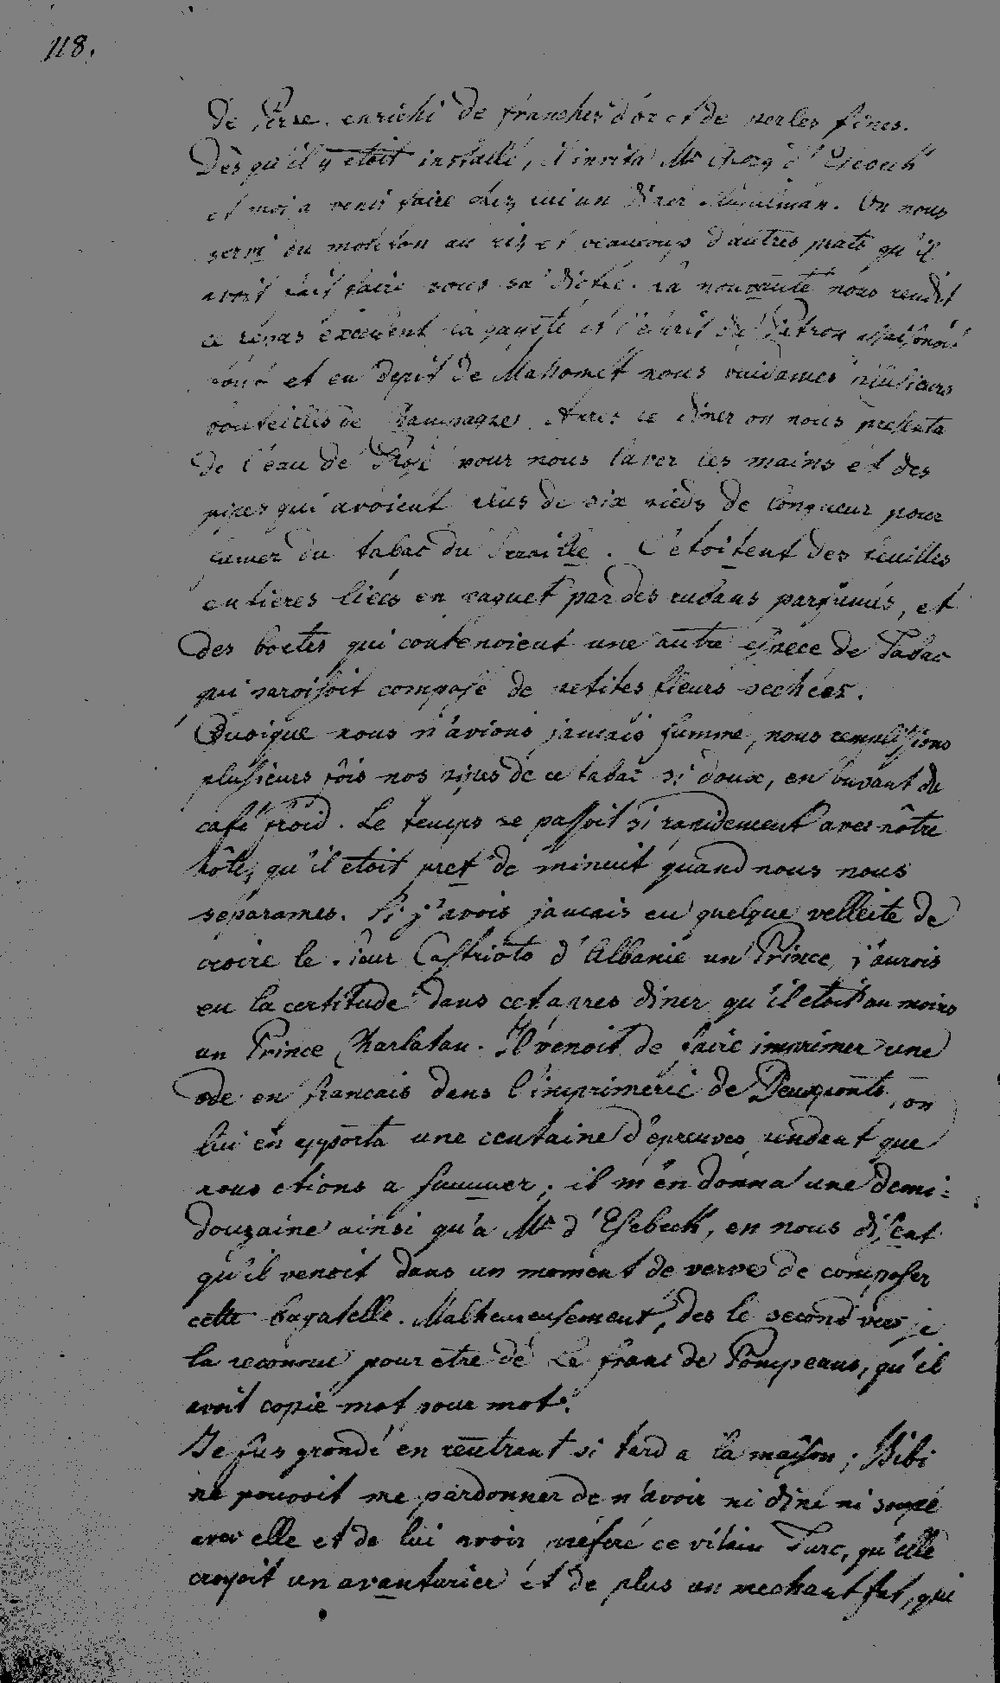 118.
de Perse enrichi de franches d'or et de perles fines.
Dès qu'il y etoit installé, il invita Mr d'Esebeck
et moi a venir faire chez lui un diner Musulman. On nous
servi du mouton au ris et beaucoup d'autres plats qu'il
avoit fait faire sous sa dictée. la nouveauté nous rendit
ce repas excellent la gayeté et l'esprit du Patron
tout et en depit de Mahomet nous vuidames plusieurs
bouteilles de Champagne. Après ce diner on nous presenta
de l'eau de Rose pour nous laver les mains et des
pipes qui avoient plus de six pieds de longueur pour
fumer du tabac du Serraille. C'etoitent des feuilles
entieres liées en paquet par des rubans parfumés, et
des boetes qui contenoient une autre espece de Tabac
qui paroissoit composé de petites fleurs sechées.
Quoique nous n'avions jamais fummé, nous remplissions
plusieurs fois nos pipes de ce tabac si doux, en buvant du
café froid. Le temps se passoit si rapidement avec nôtre
hôte, qu'il etoit pret de minuit quand nous nous
separames. Si j'avois jamais eu quelque velleité de
croire le Sieur Castrioto d'Albanie un Prince, j'aurois
eu la certitude dans cet apres diner qu'il etoit au moins
un Prince Charlatan. Il venoit de faire imprimer une
ode en francais dans l'imprimerie de Deuxponts, on
lui en apporta une centaine d'epreuves pendant que
nous etions a fummer; il m'en donna une demi-
douzaine ainsi qu'a Mr d'Esebeck, en nous disent
qu'il venoit dans un moment de verve de composer
cette bagatelle. Malheureusement, des le second vers je
la reconnue pour etre de Le franc de Pompeaus, qu'il
avoit copié mot pour mot.
Je fus grondé en rentrant si tard a la maison; Bibi
ne pouvoit me pardonner de n'avoir ni diné ni soupé
avec elle et de lui avoir preferé ce vilain Turc, qu'elle
croyoit un avanturier et de plus un mechant fat, qui